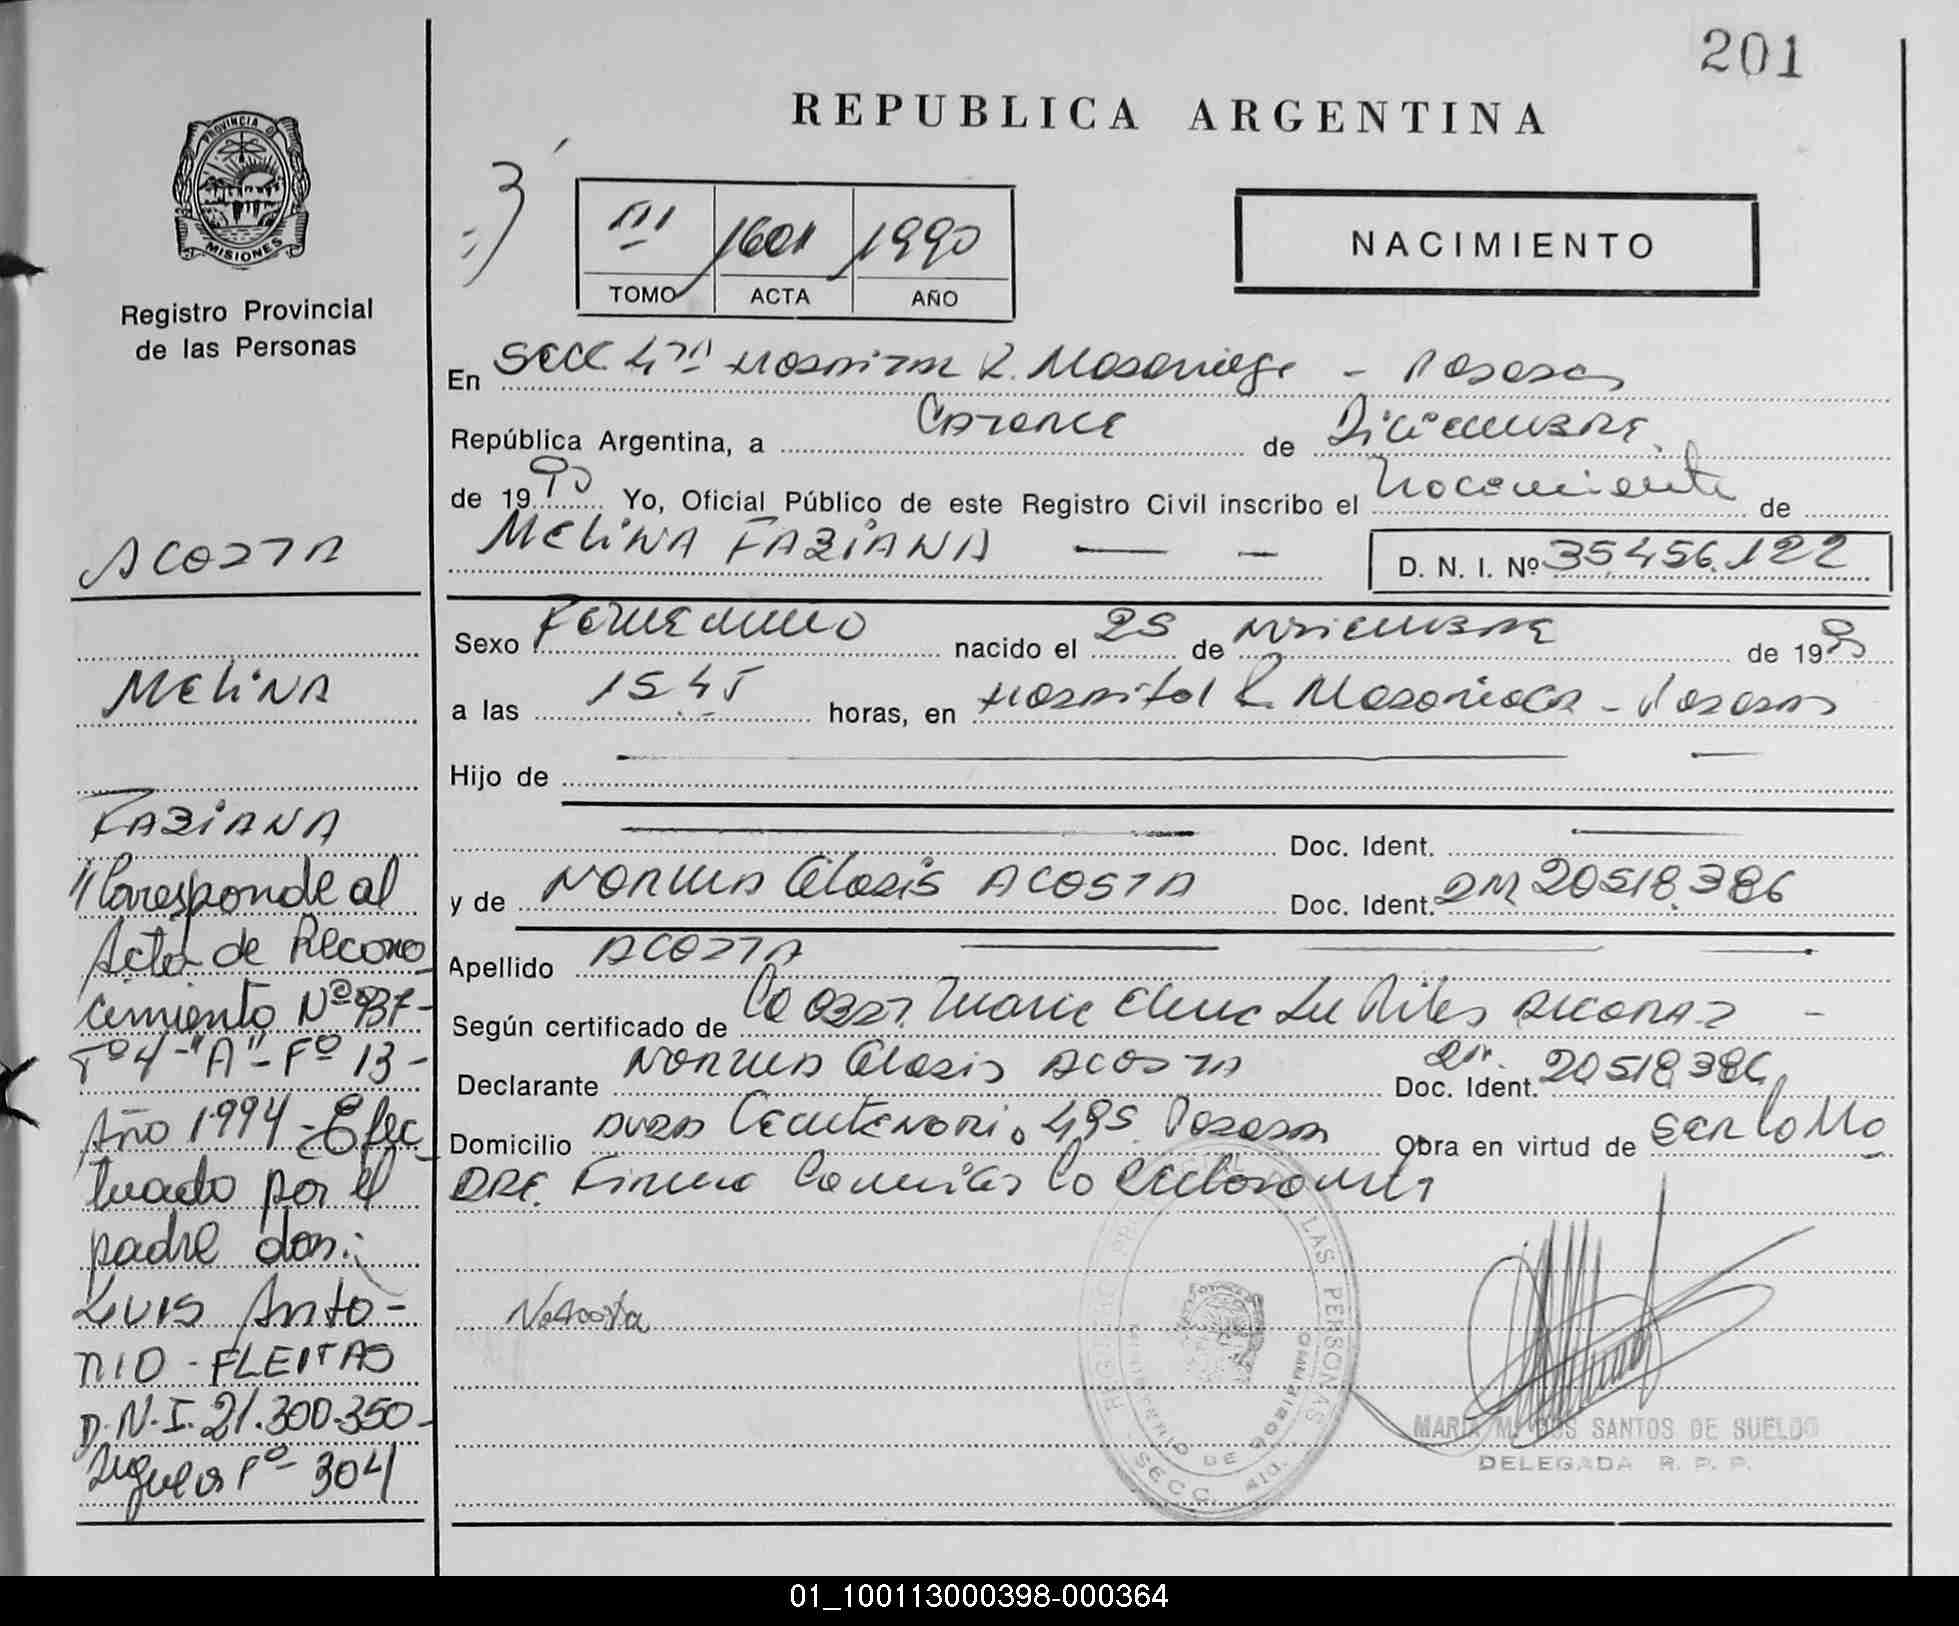 201
REPUBLICA ARGENTINA
PROVINCIA DE
MISIONES
Registro Provincial
de las Personas
III 1601 1990
TOMO ACTA AÑO
NACIMIENTO
En Secc 4ta Hospital R. Madariaga - Posadas
República Argentina, a Catorce de Diciembre
de 1990 Yo, Oficial Público de este Registro Civil inscribo el Nacimiento de
MELINA FABIANA
D. N. I. Nº 35.456.122
Sexo Femenino nacido el 25 de Noviembre de 1990
a las 15 45 horas, en Hospital R. Madariaga - Posadas
Hijo de
Doc. Ident.
y de Norma ACOSTA Doc. Ident. DNI 20518.386
Apellido ACOSTA
Según certificado de La Obst. Maria Elena
Declarante Norma ACOSTA Doc. Ident. DNI. 20.518.386
Domicilio Centenario 495 Posadas Obra en virtud de ser la Ma
dre. Firma conmigo la declarante
NAcosta
REGISTRO PROVINCIAL DE LAS PERSONAS
MINISTERIO DE GOBIERNO
SECC. 4ta.
MARIA M. DOS SANTOS DE SUELDO
DELEGADA R. P. P.
ACOSTA
MELINA
FABIANA
"Corresponde al
Acta de Recono
cimiento Nº 937-
Tº 4-"A"-Fº 13-
Año 1994 - Efec
tuado por el
padre don:
Luis Anto-
nio - FLEITAS
D.N.I. 21.300.350-
Sigue a Fº 304
01_100113000398-000364